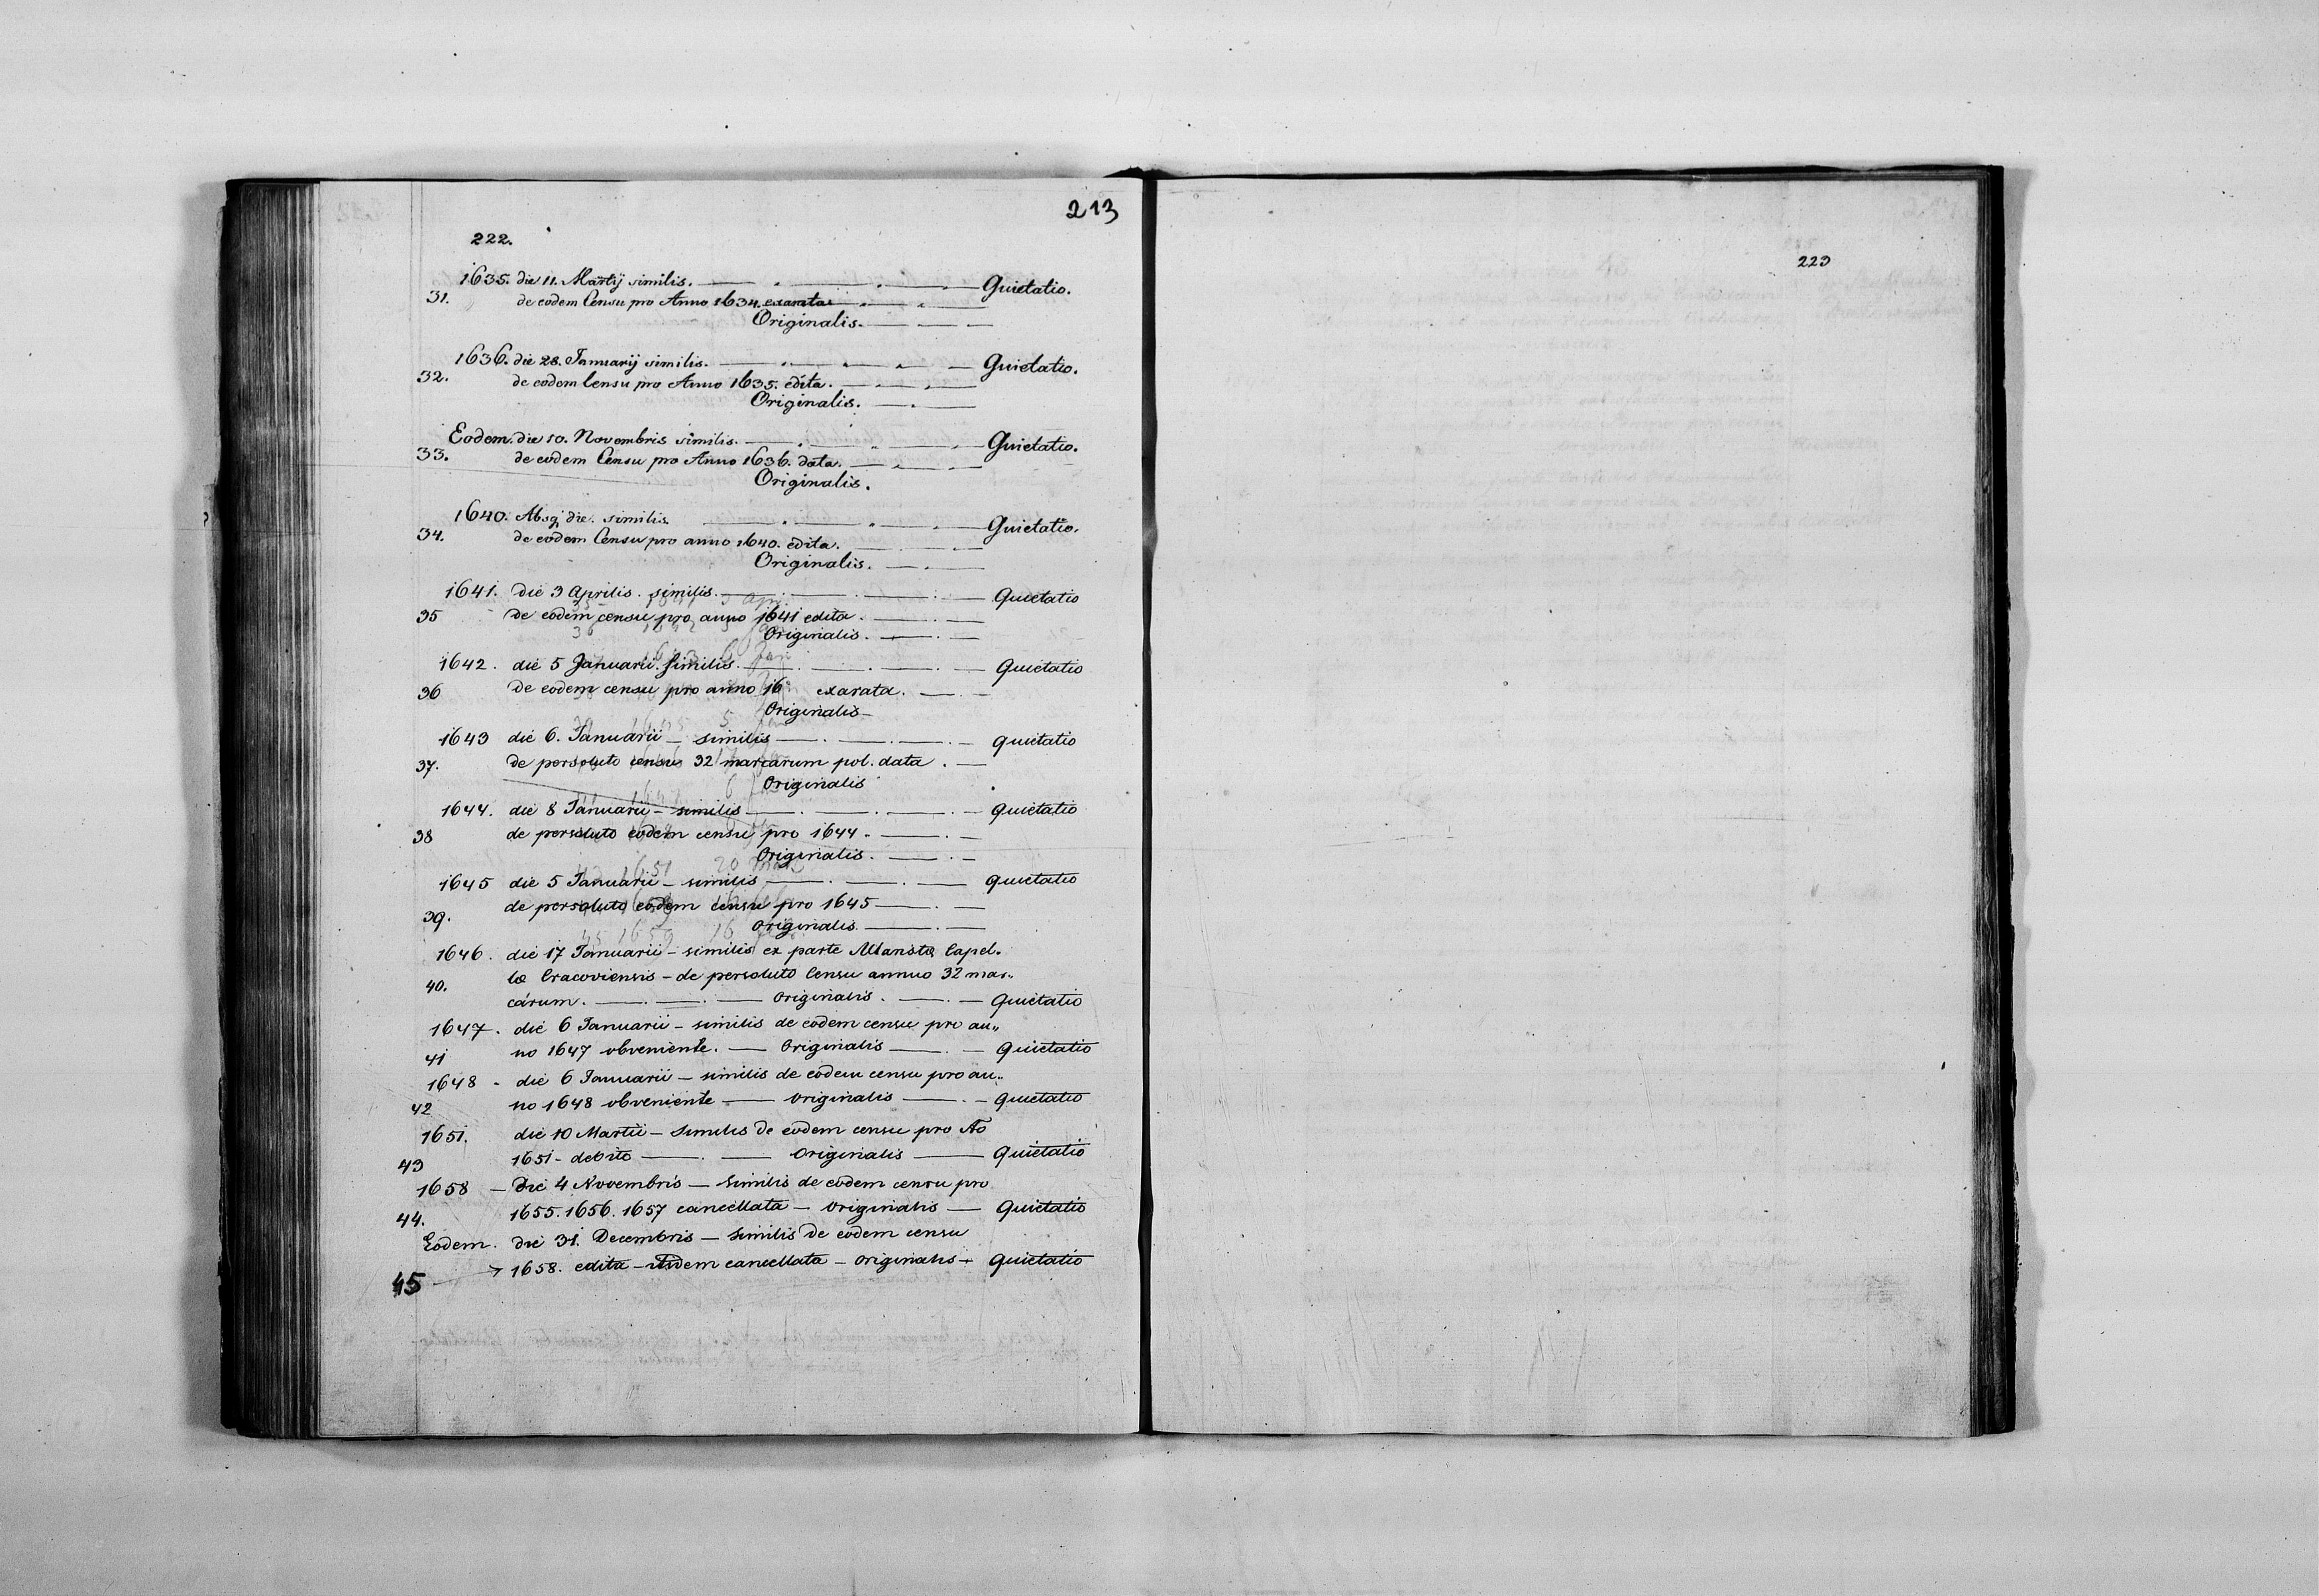 213
222.
1635. die 11. Martij similis. — Quietatio.
31. de eodem Censu pro Anno 1634. exarata —
Originalis. —
1636. die 28. Januarij similis. — Quietatio.
32. de eodem Censu pro Anno 1635. edita. —
Originalis. —
Eodem. die 10. Novembris similis. — Quietatio.
33. de eodem Censu pro Anno 1636. data. —
Originalis.
1640. Absq die. similis. — Quietatio.
34. de eodem Censu pro anno 1640. edita. —
Originalis. —
1641. die 3 Aprilis. similis. — Quietatio
35 de eodem censu pro anno 1641 edita. —
Originalis. —
1642. die 5 Januarii. similis. — Quietatio
36 de eodem censu pro anno 16 exarata. —
Originalis —
1643 die 6. Januarii — similis — Quietatio
37. de persoluto censu 32 marcarum pol. data. —
Originalis
1644. die 8 Januarii — similis — Quietatio
38 de persoluto eodem censu pro 1644. —
Originalis. —
1645 die 5 Januarii — similis — Quietatio
39. de persoluto eodem censu pro 1645 —
Originalis. —
1646. die 17 Januarii — similis ex parte Capel-
40. læ Cracoviensis — de persoluto Censu annuo 32 mar„
carum. — Originalis. — Quietatio
1647. die 6 Januarii — similis de eodem censu pro an„
41 no 1647 obveniente. — Originalis — Quietatio
1648 - die 6 Januarii — similis de eodem censu pro an„
42 no 1648 obveniente — Originalis — Quietatio
1651. die 10 Martii — Similis de eodem censu pro Ao
43 1651 - debito — Originalis — Quietatio
1658 — Die 4 Novembris — Similis de eodem censu pro
44. 1655. 1656. 1657 cancellata — originalis — Quietatio
Eodem. die 31. Decembris — Similis de eodem censu
45 1658. edita — itidem cancellata — originalis — Quietatio
223